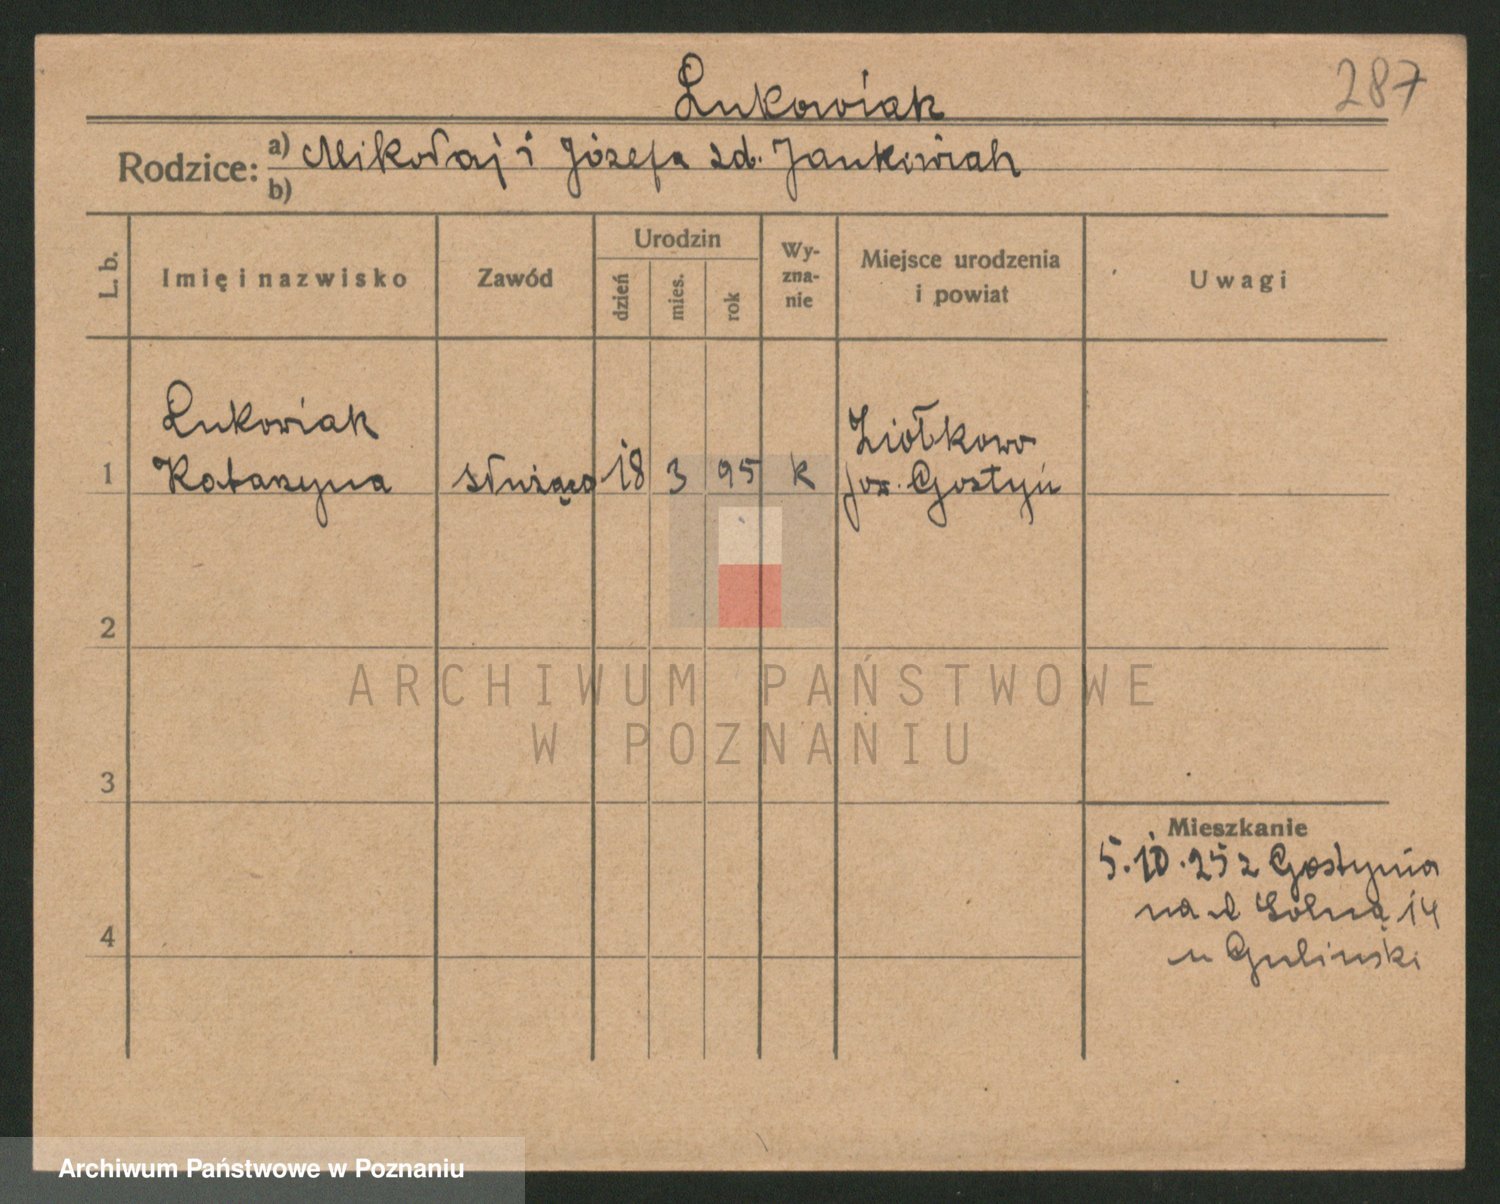 Łukowiak
287
Rodzice: a) Mikołaj i Józefa zd. Jankowiak
b)
L. b.
Imię i nazwisko
Zawód
Urodzin
dzień
mies.
rok
Wy-
zna-
nie
Miejsce urodzenia
i powiat
Uwagi
Łukowiak
Ziółkowo
1 Katarzyna służąca 18 3 95 k pow. Gostyń
2
ARCHIWUM PAŃSTWOWE
W POZNANIU
3
Mieszkanie
5.10.25 z Gostynia
na ul Solną 14
4
u Guliński
Archiwum Państwowe w Poznaniu